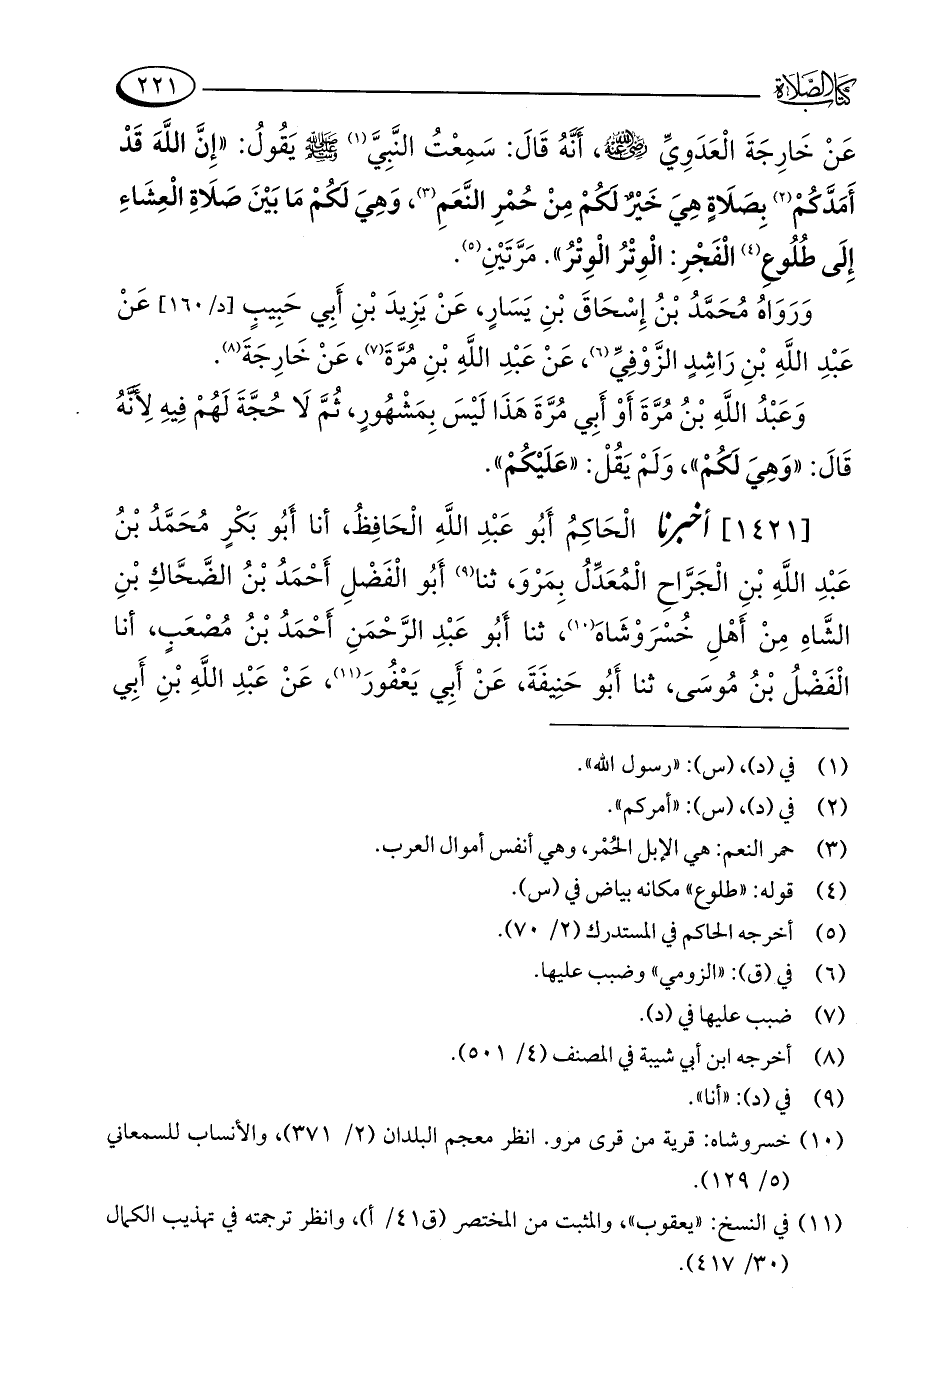 كتاب الصلاة ٢٢١
عَنْ خَارِجَةَ الْعَدَوِيِّ رضي الله عنه، أَنَّهُ قَالَ: سَمِعْتُ النَّبِيَّ(١) ﷺ يَقُولُ: «إِنَّ اللَّهَ قَدْ
أَمَدَّكُمْ(٢) بِصَلَاةٍ هِيَ خَيْرٌ لَكُمْ مِنْ حُمْرِ النَّعَمِ(٣)، وَهِيَ لَكُمْ مَا بَيْنَ صَلَاةِ الْعِشَاءِ
إِلَى طُلُوعِ(٤) الْفَجْرِ: الْوِتْرُ الْوِتْرُ». مَرَّتَيْنِ(٥).
وَرَوَاهُ مُحَمَّدُ بْنُ إِسْحَاقَ بْنِ يَسَارٍ، عَنْ يَزِيدَ بْنِ أَبِي حَبِيبٍ [د/١٦٠] عَنْ
عَبْدِ اللَّهِ بْنِ رَاشِدٍ الزَّوْفِيِّ(٦)، عَنْ عَبْدِ اللَّهِ بْنِ مُرَّةَ(٧)، عَنْ خَارِجَةَ(٨).
وَعَبْدُ اللَّهِ بْنُ مُرَّةَ أَوْ أَبِي مُرَّةَ هَذَا لَيْسَ بِمَشْهُورٍ، ثُمَّ لَا حُجَّةَ لَهُمْ فِيهِ لِأَنَّهُ
قَالَ: «وَهِيَ لَكُمْ»، وَلَمْ يَقُلْ: «عَلَيْكُمْ».
[١٤٢١] أخبرنا الْحَاكِمُ أَبُو عَبْدِ اللَّهِ الْحَافِظُ، أنا أَبُو بَكْرٍ مُحَمَّدُ بْنُ
عَبْدِ اللَّهِ بْنِ الْجَرَّاحِ الْمُعَدِّلُ بِمَرْوَ، ثنا(٩) أَبُو الْفَضْلِ أَحْمَدُ بْنُ الضَّحَّاكِ بْنِ
الشَّاهِ مِنْ أَهْلِ خُسْرَوْشَاهَ(١٠)، ثنا أَبُو عَبْدِ الرَّحْمَنِ أَحْمَدُ بْنُ مُصْعَبٍ، أنا
الْفَضْلُ بْنُ مُوسَى، ثنا أَبُو حَنِيفَةَ، عَنْ أَبِي يَعْفُورَ(١١)، عَنْ عَبْدِ اللَّهِ بْنِ أَبِي
(١) في (د)، (س): «رسول الله».
(٢) في (د)، (س): «أمركم».
(٣) حمر النعم: هي الإبل الحُمْر، وهي أنفس أموال العرب.
(٤) قوله: «طلوع» مكانه بياض في (س).
(٥) أخرجه الحاكم في المستدرك (٢/ ٧٠).
(٦) في (ق): «الزومي» وضبب عليها.
(٧) ضبب عليها في (د).
(٨) أخرجه ابن أبي شيبة في المصنف (٤/ ٥٠١).
(٩) في (د): «أنا».
(١٠) خسروشاه: قرية من قرى مرو. انظر معجم البلدان (٢/ ٣٧١)، والأنساب للسمعاني
(٥/ ١٢٩).
(١١) في النسخ: «يعقوب»، والمثبت من المختصر (ق٤١/ أ)، وانظر ترجمته في تهذيب الكمال
(٣٠/ ٤١٧).